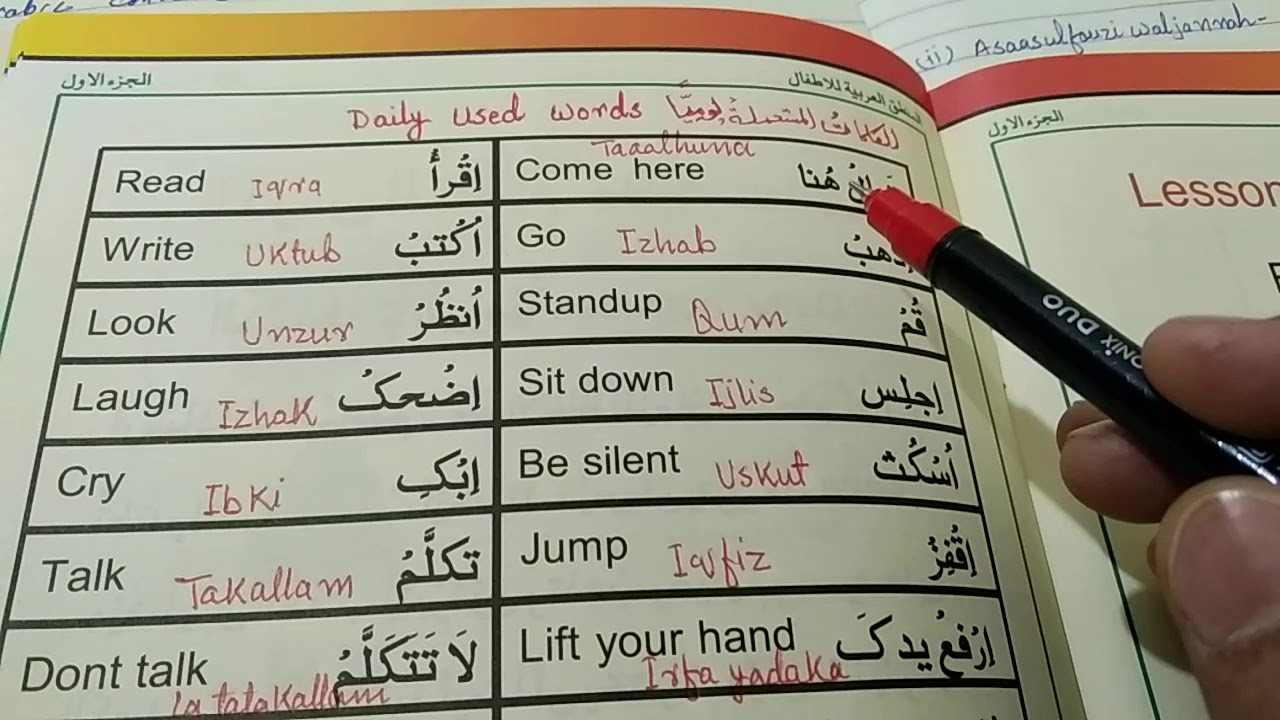 (ii) Asaasulfauzi waljannah-
الجزء الاول
المنطق العربية للاطفال
الجزء الاول
Daily used words الكلماتُ المستعملةُ يوميًّا
Lesson
Read Iqra إقُرأُ
Taaalhuna
Come here هُنا
Write Uktub اُكُتبُ
Go Izhab
Look Unzur اُنظُرُ
Standup Qum قُمُ
Laugh Izhak إضُحکُ
Sit down Ijlis إجلِس
Cry Ibki إبُكِ
Be silent Uskut اُسُكُتُ
Talk Takallam تكلَّمُ
Jump Iqfiz إقُفِزُ
Dont talk لَا تَتَكَلَّمُ
la tatakallam
Lift your hand إرُفعُ يدکَ
Irfa yadaka